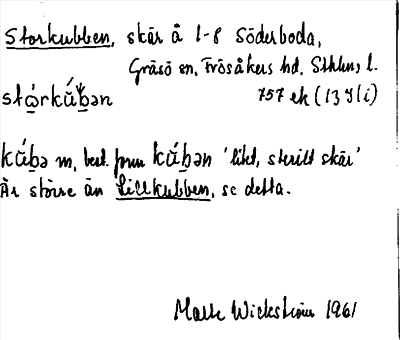 Storkubben, skär å 1-8 Söderboda,
Gräsö sn, Frösåkers hd, Sthlms l.
stώ̣rkúb̯ən 757 ek (13 I 1 i)
kúb̯ə m, best. form kúb̯ən 'litet, sterilt skär'
Är större än Lillkubben, se detta.
Malte Wickström 1961